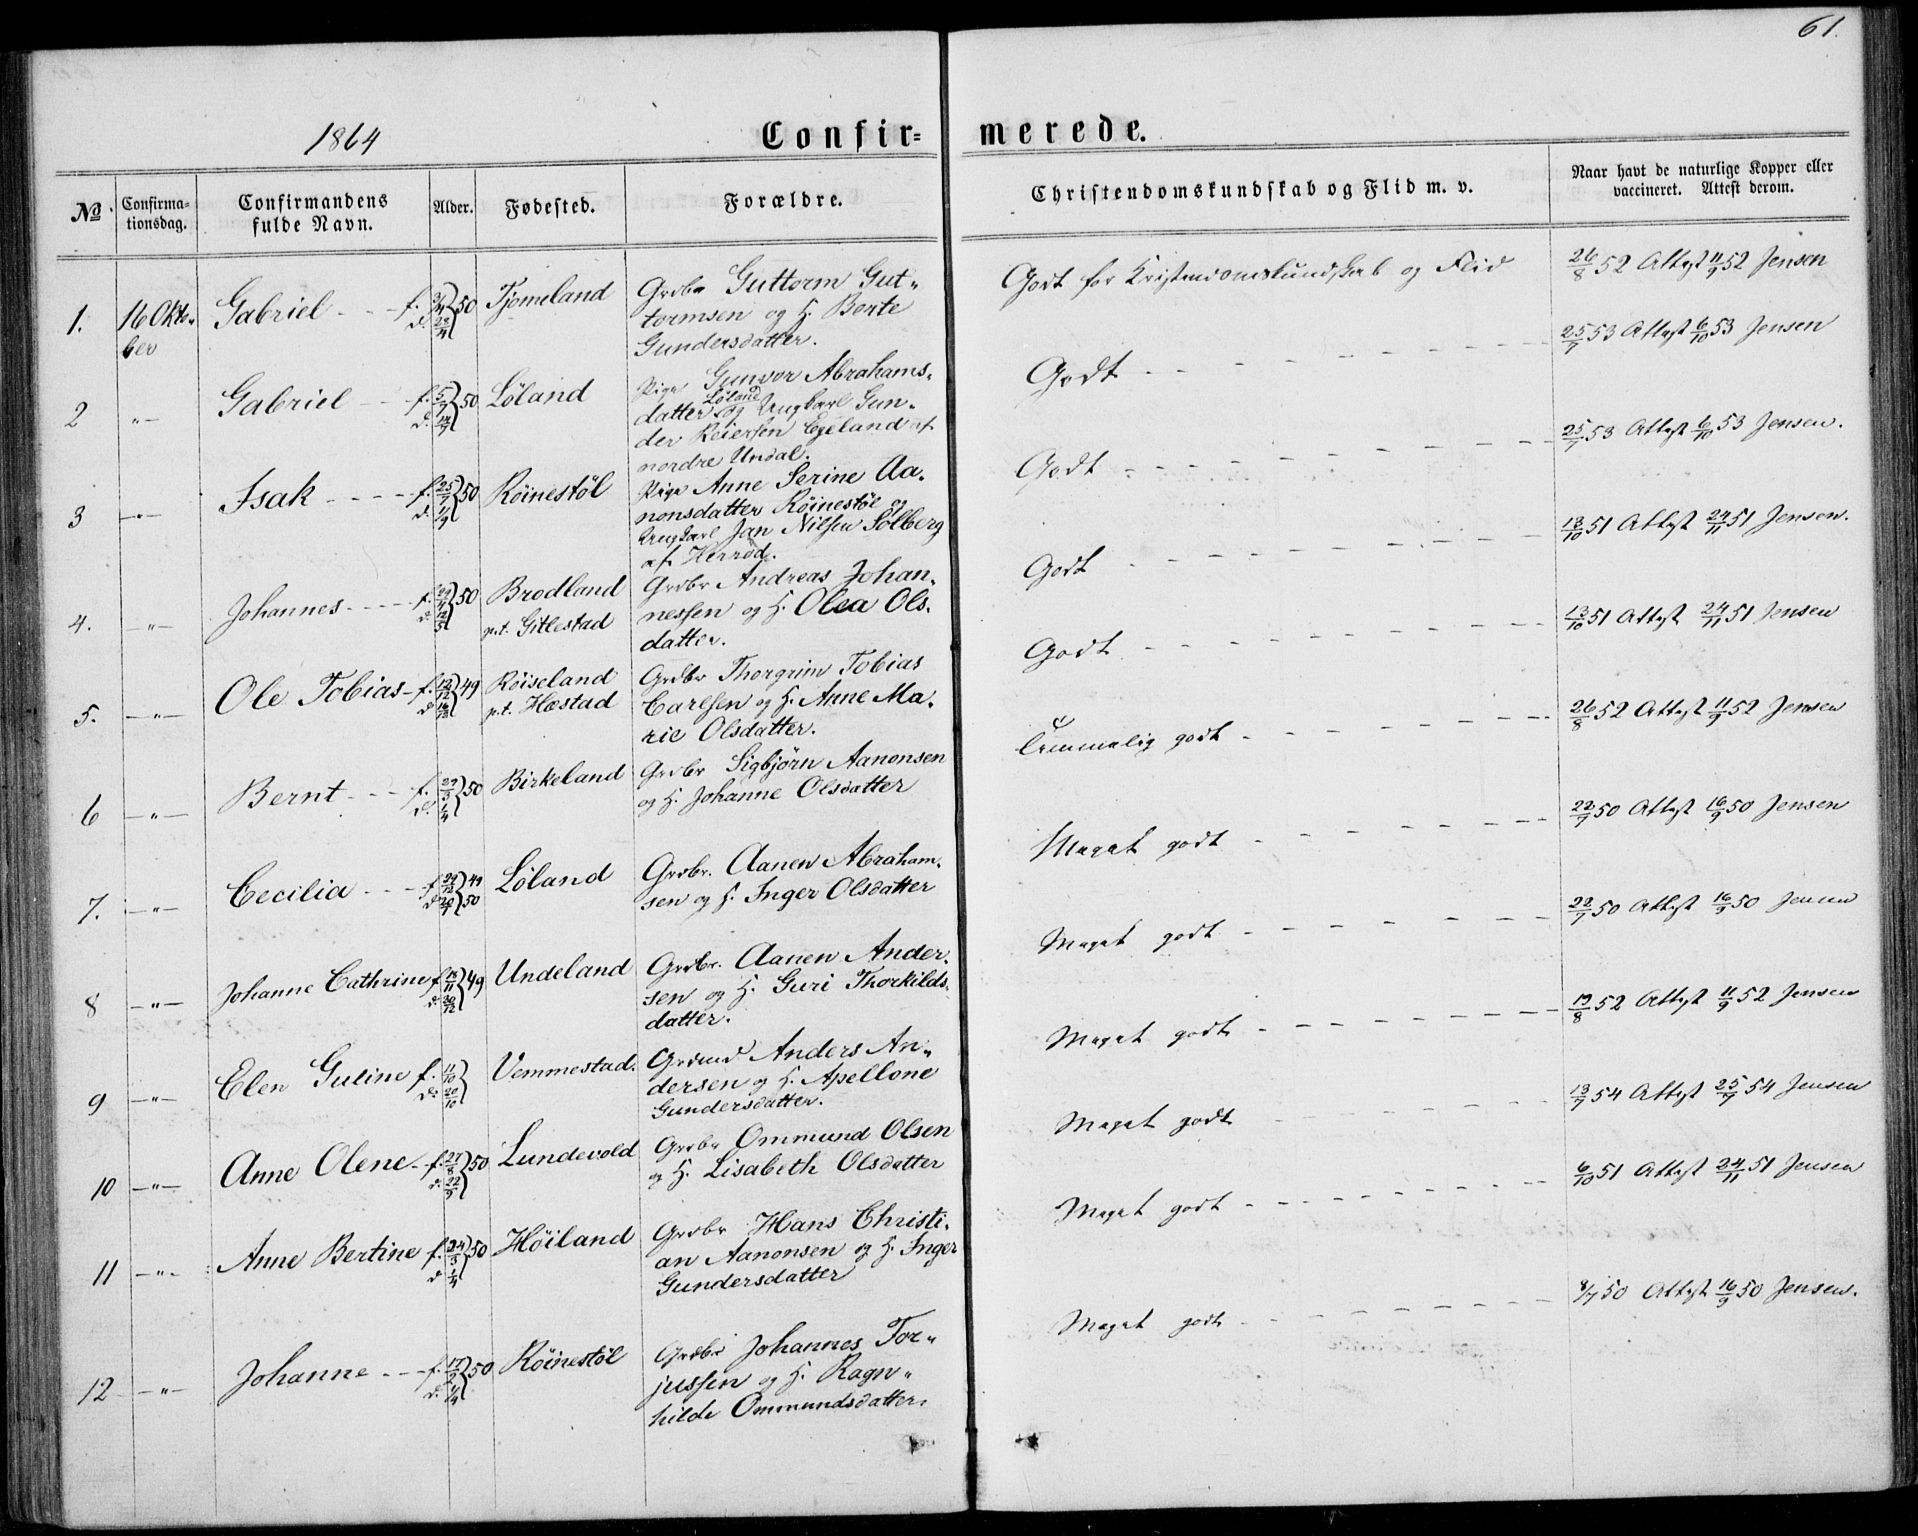 61.
1864
Confir- merede.
No.
Confirma-
tionsdag.
Confirmandens
fulde Navn.
Alder.
Fødested.
Forældre.
Christendomskundskab og Flid m. v.
Naar havt de naturlige Kopper eller
vaccineret. Attest derom.
1. 16 Okto- Gabriel - - - f. 50 Tjomeland Grdbr Guttorm Gut- Godt for Kristendomskundskab og Flid 26/8 52 Attest 11/9 52 Jensen
ber d. 23/4 tormsen og H. Berte
Gundersdatter.
2 -"- Gabriel - - f. 5/7 50 Løland Pige Gunvor Abrahams- Godt - - - 25/7 53 Attest 6/10 53 Jensen
d. 14/7 datter Løland og Ungkarl Gun-
der Reiersen Egeland af
nordre Undal.
3 -"- Isak - - - - f. 25/7 50 Røinestøl Pige Anne Serine Aa- Godt - - - 25/7 53 Attest 6/10 53 Jensen.
d. 1/9 nonsdatter Røinestøl og
Ungkarl Jan Nilsen Solberg
af Herrød.
4. -"- Johannes - - - - f. 50 Brodland Grdbr Andreas Johan- Godt - - - 13/10 51 Attest 24/11 51 Jensen.
d. 12/5 p.t. Gitlestad nessen og H. Olea Ols-
datter.
5. -"- Ole Tobias - f. 12/12 49 Røiseland Grdbr Thorgrim Tobias Godt - - - 13/10 51 Attest 24/11 51 Jensen
d. 16/12 p.t. Hæstad Carlsen og H. Anne Ma-
rie Olsdatter.
6 -"- Bernt - - - f. 29/3 50 Birkeland Grdbr Sigbjørn Aanonsen Temmelig godt - - - 26/8 52 Attest 11/9 52 Jensen
d. 1/4 og H. Johanne Olsdatter
7. -"- Cecilia - - - f. 29/12 49 Løland Grdbr. Aanen Abraham- Meget godt - - - 22/7 50 Attest 16/9 50 Jensen
d. 50 sen og H. Inger Olsdatter
8 -"- Johanne Cathrine f. 49 Undeland Grdbr. Aanen Ander- Meget godt - - - 22/7 50 Attest 16/9 50 Jensen
d. 30/12 sen og H. Guri Thorkilds-
datter.
9 -"- Elen Guline f. 11/10 Vemmestad. Anders An- Meget godt - - - 19/8 52 Attest 11/9 52 Jensen
d. 20/10 dersen og H. Apellone
Gundersdatter.
10 -"- Anne Olene - f. 27/8 50 Lundevold Grdbr Ommund Olsen Meget godt - - - 13/7 54 Attest 25/7 54 Jensen
d. 22/9 og H. Lisabeth Olsdatter
11 -"- Anne Bertine f. 24/3 50 Høiland Grdbr Hans Christi- Meget godt - - - 6/10 51 Attest 24/11 51 Jensen
d. 1/4 an Aanonsen og H. Inger
Gundersdatter
12 -"- Johanne - - - f. 50 Røinestøl Grdbr Johannes Tor- Meget godt - - - 8/7 50 Attest 16/9 50 Jensen.
d. 1/4 jussen og H. Ragn-
hilde Ommundsdatter.